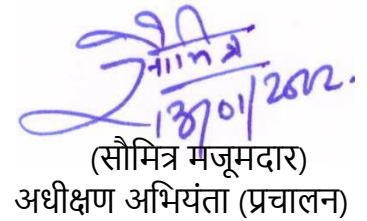 सौमित्र
13/01/2022.
(सौमित्र मजूमदार)
अधीक्षण अभियंता (प्रचालन)